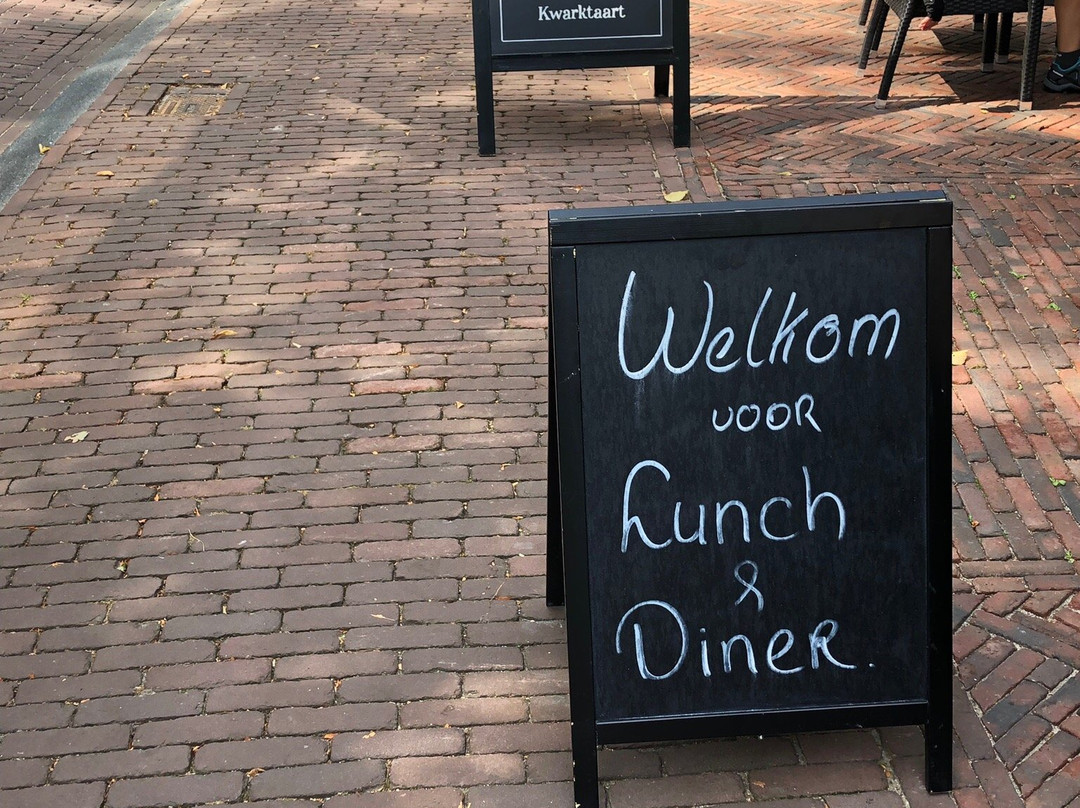 Kwarktaart
Welkom
voor
Lunch
&
Diner.